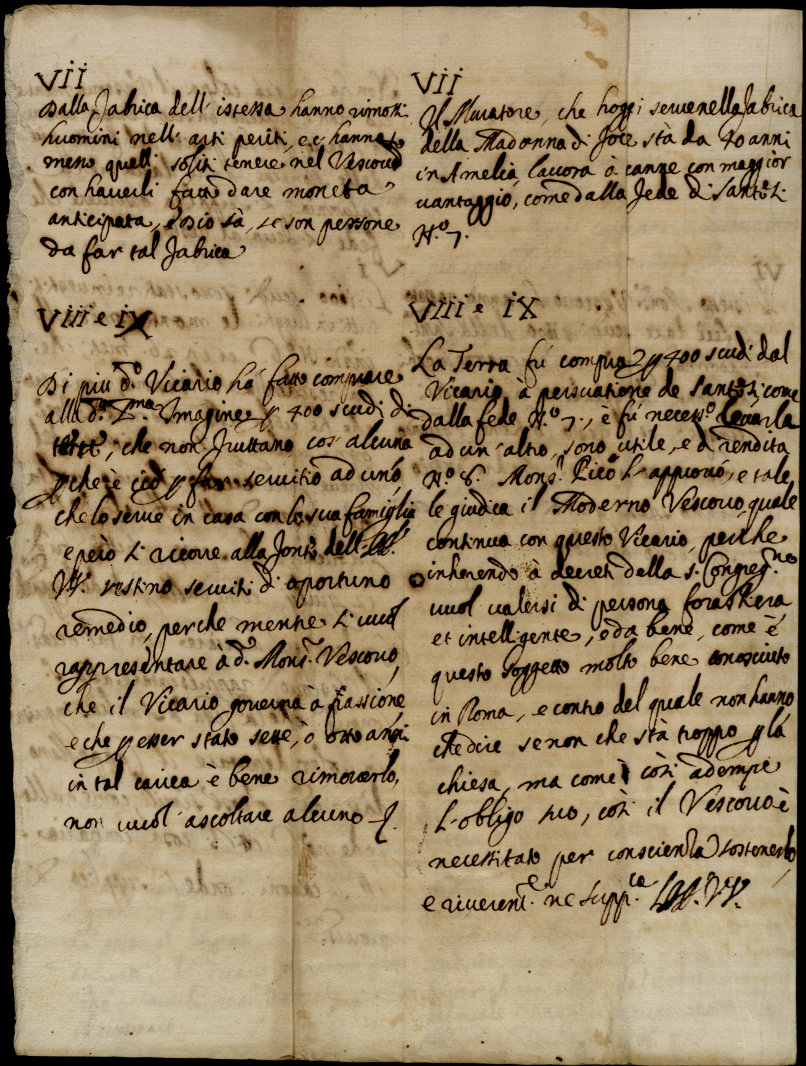 VII
Dalla fabrica dell' istessa hanno rimossi
huomini nell' arti periti, et hanno
meno quelli soliti tenere nel Vescovo
con haverli fatto dare moneta
anticipata, Iddio sà, se son persone
da far tal fabrica
VIII e IX
Di più d.º Vicario há fatto comprare
alla d.ª S.ma Imagine p 400 scudi di
che non fruttano cos' alcuna
p che è ciò p far servitio ad uno,
che lo serve in casa con la sua famiglia
e però si ricorre alla
VV. restino serviti di oportuno
remedio, perche mentre si vuol
rappresentare à d.º Mons.r Vescovo,
che il Vicario governa à passione
e che p esser stato sette, ò otto anni
in tal carica è bene rimoverlo,
non vuol ascoltare alcuno
VII
Il Muratore, che hoggi serve nella fabrica
della Madonna di foce stà da 40 anni
in Amelia, lavora à canne con maggior
vantaggio, come dalla fede di
N.º 7.
VIII e IX
La Terra fú compra p 400 scudi dal
Vicario à persuatione de come
dalla fede N.º 7., è fú necess.º levarla
ad un' altro, sono utile, e di rendita
N.º 8. Mons.r Picò l' approvó, e tale
le giudica il Moderno Vescovo, quale
continua con questo Vicario, perche
inherendo à decreti della s. Congreg.ne
vuol valersi di persona forastiera
et intelligente, e da bene, come è
questo soggetto molto bene conosciuto
in Roma, e contro del quale non hanno
che dire se non che stà troppo p la
chiesa, ma come così adempe
l' obligo suo, così il Vescovo è
necessitato per conscienza sostenerlo,
e riverent.e ne supp.ca VV.